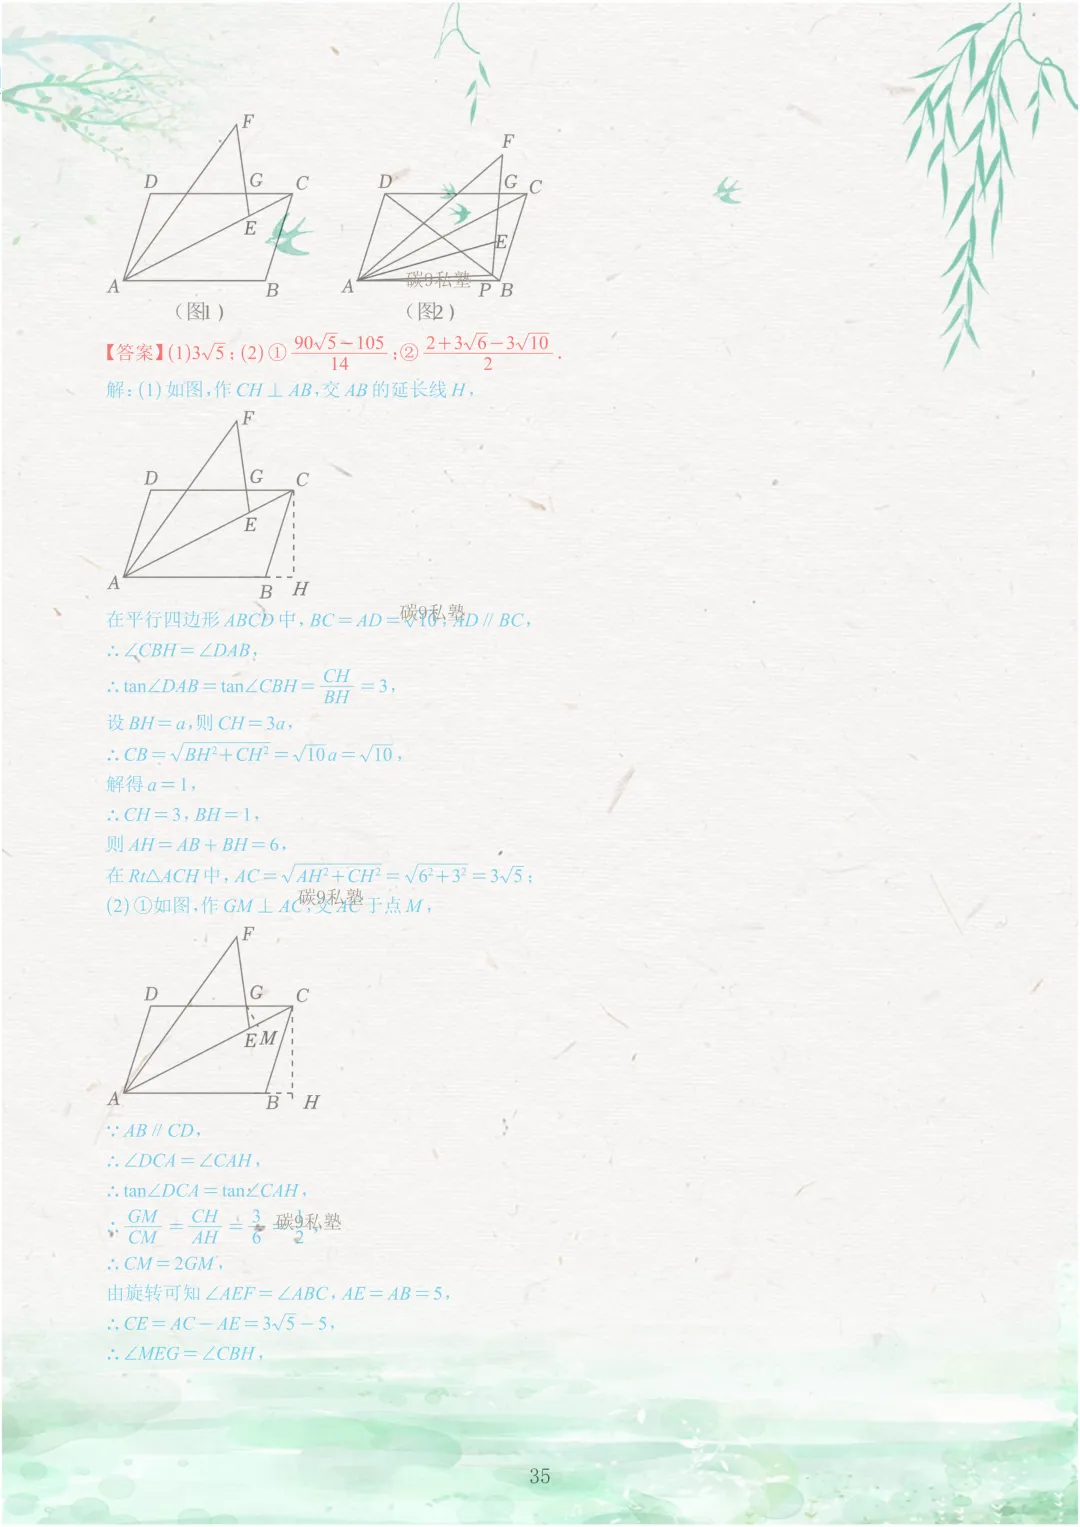 F
D G C
E
A B
(图1)
F
D G C
E
A P B
碳9私塾
(图2)
【答案】(1)3√5;(2)①(90√5−105)/14;②(2+3√6−3√10)/2.
解:(1)如图,作CH⊥AB,交AB的延长线H,
F
D G C
E
A B H
在平行四边形ABCD中,BC=AD=√10,AD∥BC,
碳9私塾
∴∠CBH=∠DAB,
∴tan∠DAB=tan∠CBH=CH/BH=3,
设BH=a,则CH=3a,
∴CB=√(BH²+CH²)=√10a=√10,
解得a=1,
∴CH=3,BH=1,
则AH=AB+BH=6,
在Rt△ACH中,AC=√(AH²+CH²)=√(6²+3²)=3√5;
碳9私塾
(2)①如图,作GM⊥AC,交AC于点M,
F
D G C
E M
A B H
∵AB∥CD,
∴∠DCA=∠CAH,
∴tan∠DCA=tan∠CAH,
∴GM/CM=CH/AH=3/6=1/2,
碳9私塾
∴CM=2GM,
由旋转可知∠AEF=∠ABC,AE=AB=5,
∴CE=AC−AE=3√5−5,
∴∠MEG=∠CBH,
35